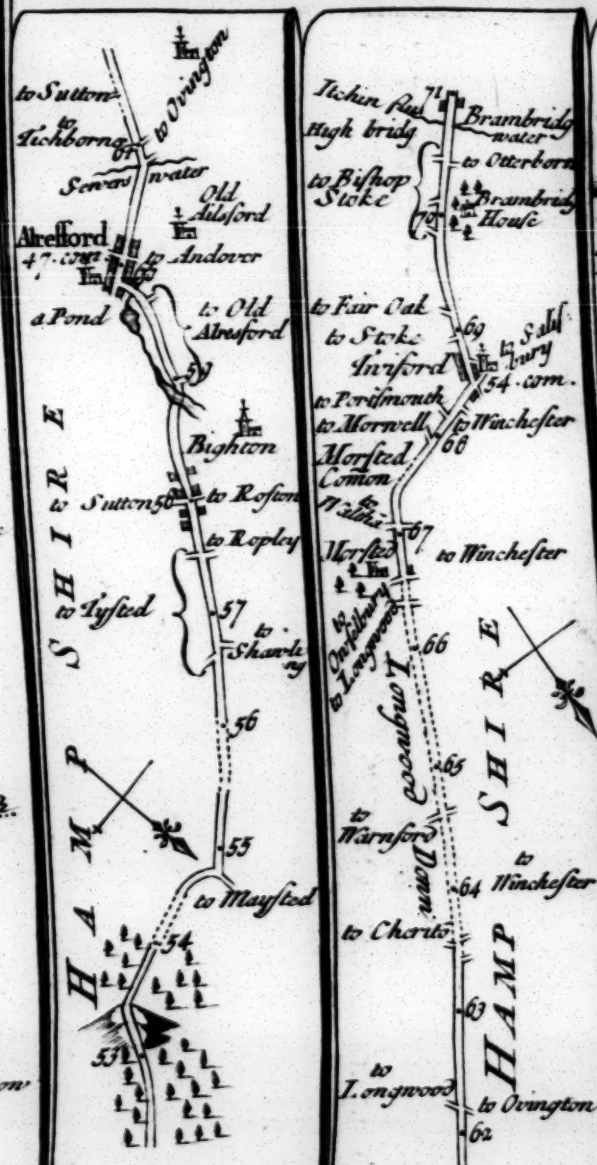 to Ovington
to Sutton
to
Tichborne
61
Sewers water
Old
Ailsford
Alresford
47. com.
to Andover
60
a Pond
to Old
Alresford
59
Bighton
to Sutton
58
to Roston
to Ropley
to Tysted
57
to
Shawling
56
55
to Maysted
54
53
HAMP SHIRE
Itchin Flu
71
Brambridg
water
High bridg
to Otterborn
to Bishop
Stoke
70
Brambridg
House
to Fair Oak
69
to Stoke
to Salis
bury
Twiford
54. com.
to Portsmouth
to Morwell
to Winchester
68
Morsted
Comon
to
67
Morsted
to Winchester
to
Owselbury
to Longwood
66
Longwood Down
65
to
Warnford
64
to
Winchester
to Cherito
63
to
Longwood
to Ovington
62
HAMP SHIRE